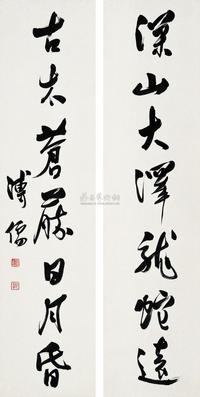 深山大澤龍蛇遠
古木蒼藤日月昏
溥儒